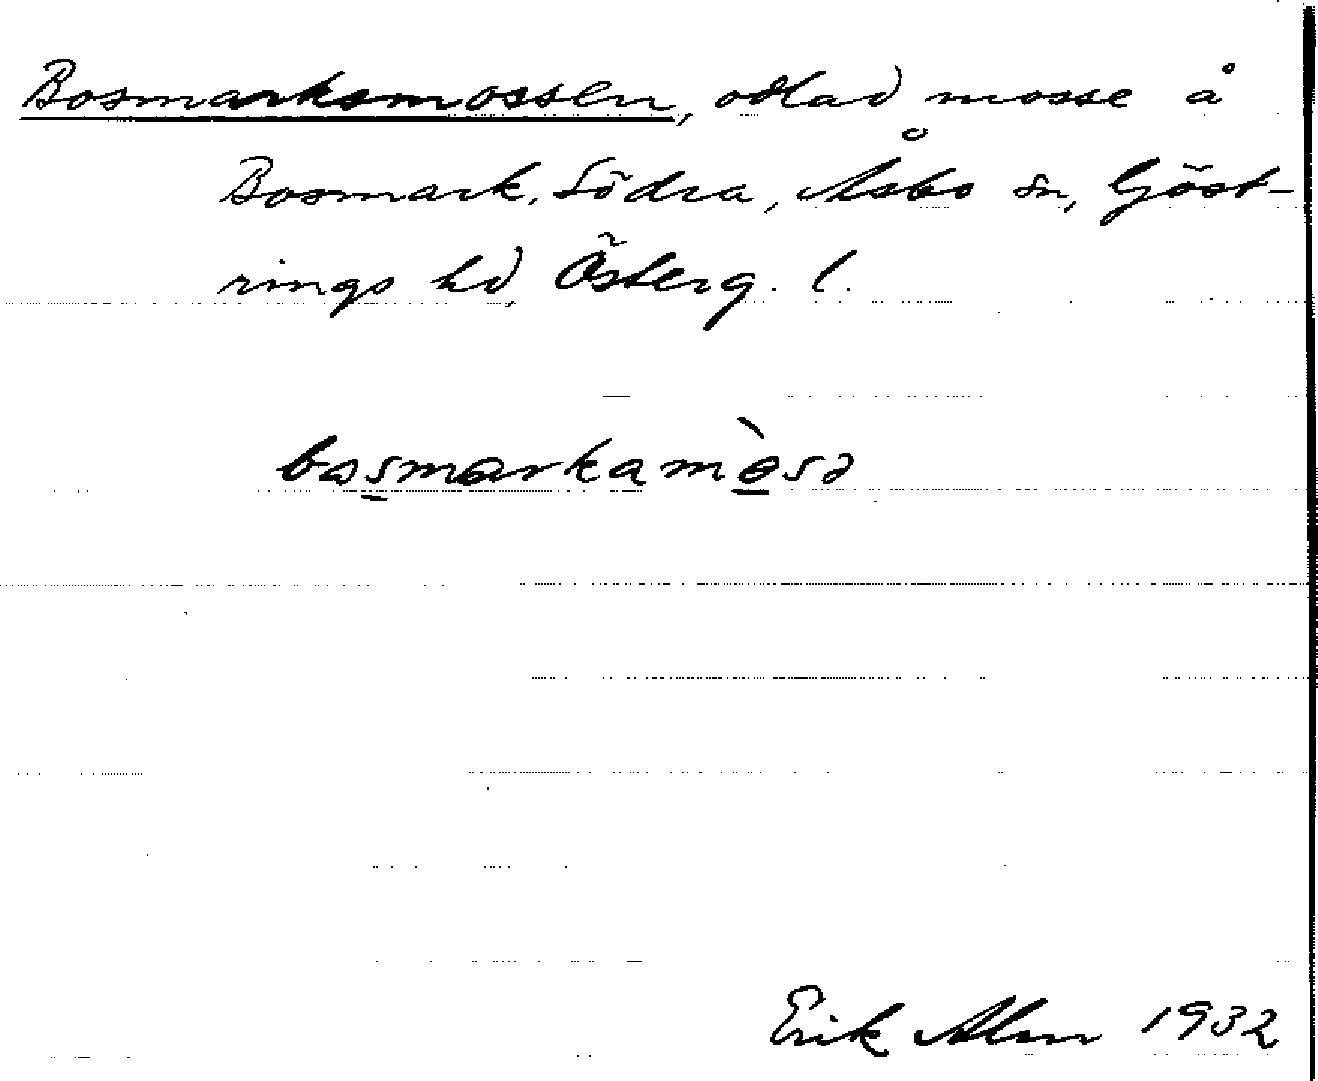 Bosmarksmossen, odlad mosse å
Bosmark, Södra, Åsbo sn, Göst-
rings hd, Österg. l.
bosmarkamòsa
Erik Alm 1932